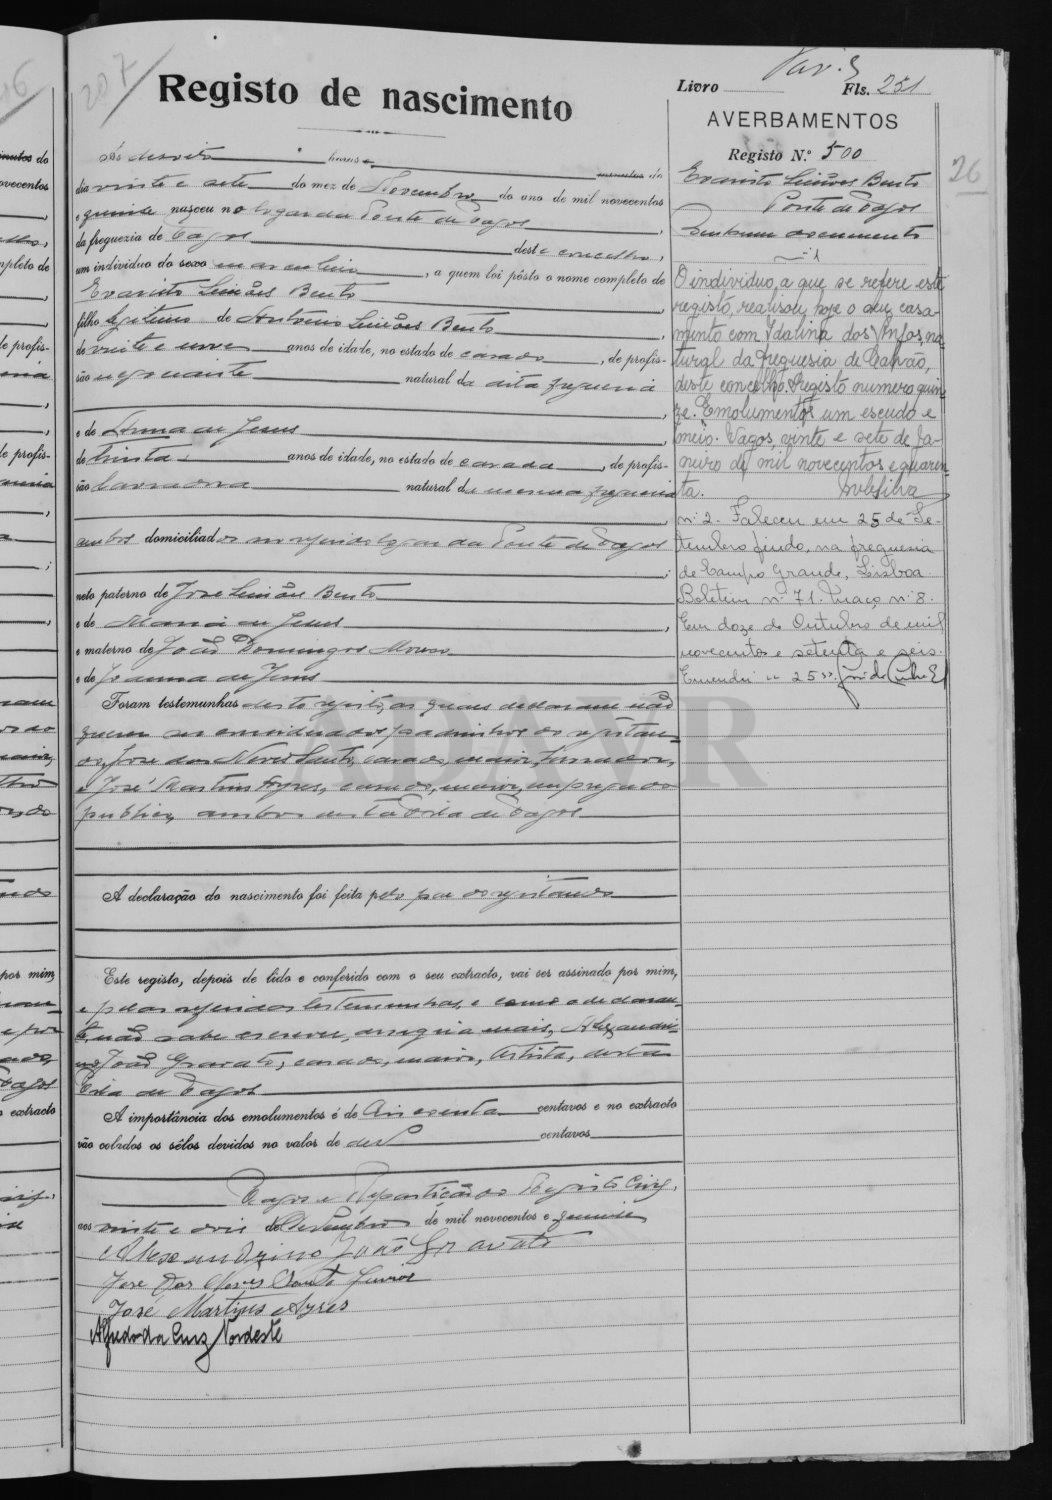 207
Registo de nascimento
Livro Fls. 251
AVERBAMENTOS
Registo N.º 500
26
Evaristo Simões Bento
Ponte de Vagos
Nenhum documento
Ás dezoito horas e minutos do
dia vinte e sete do mez de Novembro do ano de mil novecentos
e quinze nasceu no logar da Ponte de Vagos,
da freguezia de Vagos deste concelho,
um individuo do sexo masculino, a quem foi pôsto o nome completo de
Evaristo Simões Bento
filho legitimo de Antonio Simões Bento,
de vinte e nove anos de idade, no estado de casado, de profis-
são negociante natural da dita freguesia,
e de Anna de Jesus,
de trinta anos de idade, no estado de casada, de profis-
são lavradora natural da mesma freguesia,
ambos domiciliados no referido logar da Ponte de Vagos;
neto paterno de José Simões Bento
e de Maria de Jesus,
e materno de João Domingos
e de Joanna de Jesus
Foram testemunhas deste registo, as quaes declararam não
querem ser considerados padrinhos do registan-
do, José das Neves Santo, casado, maior,
e José Martins Ayres, casado, maior, empregado
publico, ambos desta Vila de Vagos
A declaração do nascimento foi feita pelo pae do registando
Este registo, depois de lido e conferido com o seu extracto, vai ser assinado por mim,
e pelas referidas testemunhas, e como o declaran-
te, não sabe escrever, assigna mais, Alexandri-
no João Gravato, casado, maior, Artista, desta
Vila de Vagos
A importância dos emolumentos é de cincoenta centavos e no extracto
vão colados os sêlos devidos no valor de dez centavos
Vagos e Repartição do Registo Civil,
aos vinte e dois de Dezembro de mil novecentos e quinze
Alexandrino João Gravato
José das Neves Santo Junior
José Martins Ayres
Alfredo da Cruz Nordeste
n.º 1
O individuo, a que se refere este
registo, realisou hoje o seu casa-
mento com Idalina dos Anjos, na-
tural da freguesia de Calvão,
deste concelho. Registo numero quin-
ze. Emolumentos um escudo e
meio. Vagos, vinte e sete de Ja-
neiro de mil novecentos e quaren-
ta.
n.º 2. Faleceu em 25 de Se-
tembro findo, na freguesia
de Campo Grande, Lisboa.
Boletim n.º 71. Maço n.º 8.
Em doze de Outubro de mil
novecentos e setenta e seis.
Emendei "25".
ADAVR